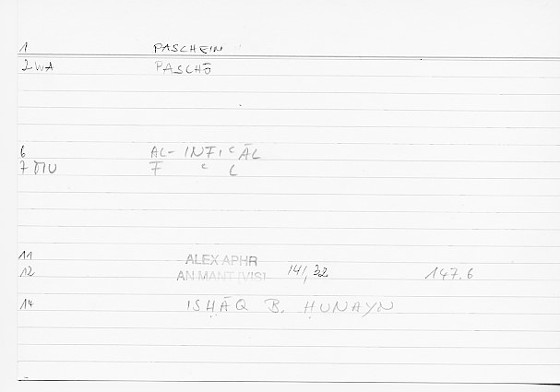 1 PASCHEIN
2 WA PASCHŌ
6 AL- INFIʿĀL
7 F ʿ L
11 ALEX APHR
12 AN MANT (VIS). 141, 32 147.6
14 ISḤĀQ B. ḤUNAYN